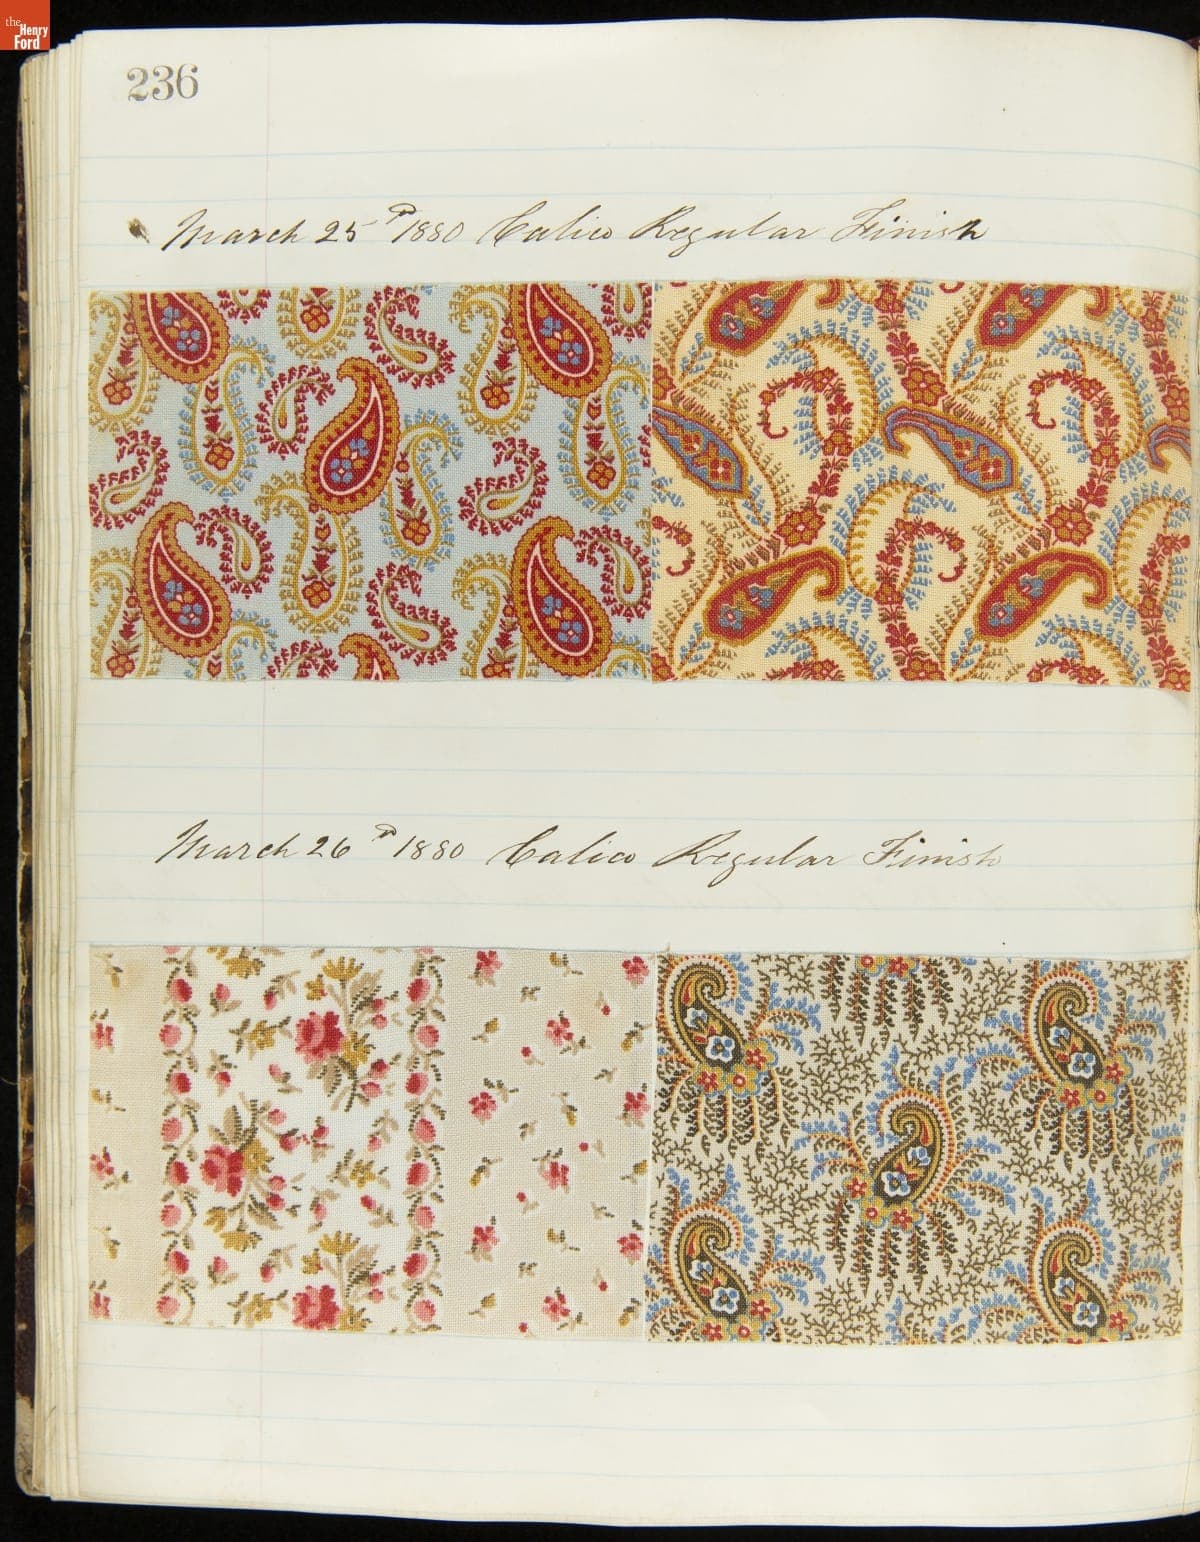 the
Henry
Ford
236
March 25th 1880 Calico Regular Finish
March 26th 1880 Calico Regular Finish